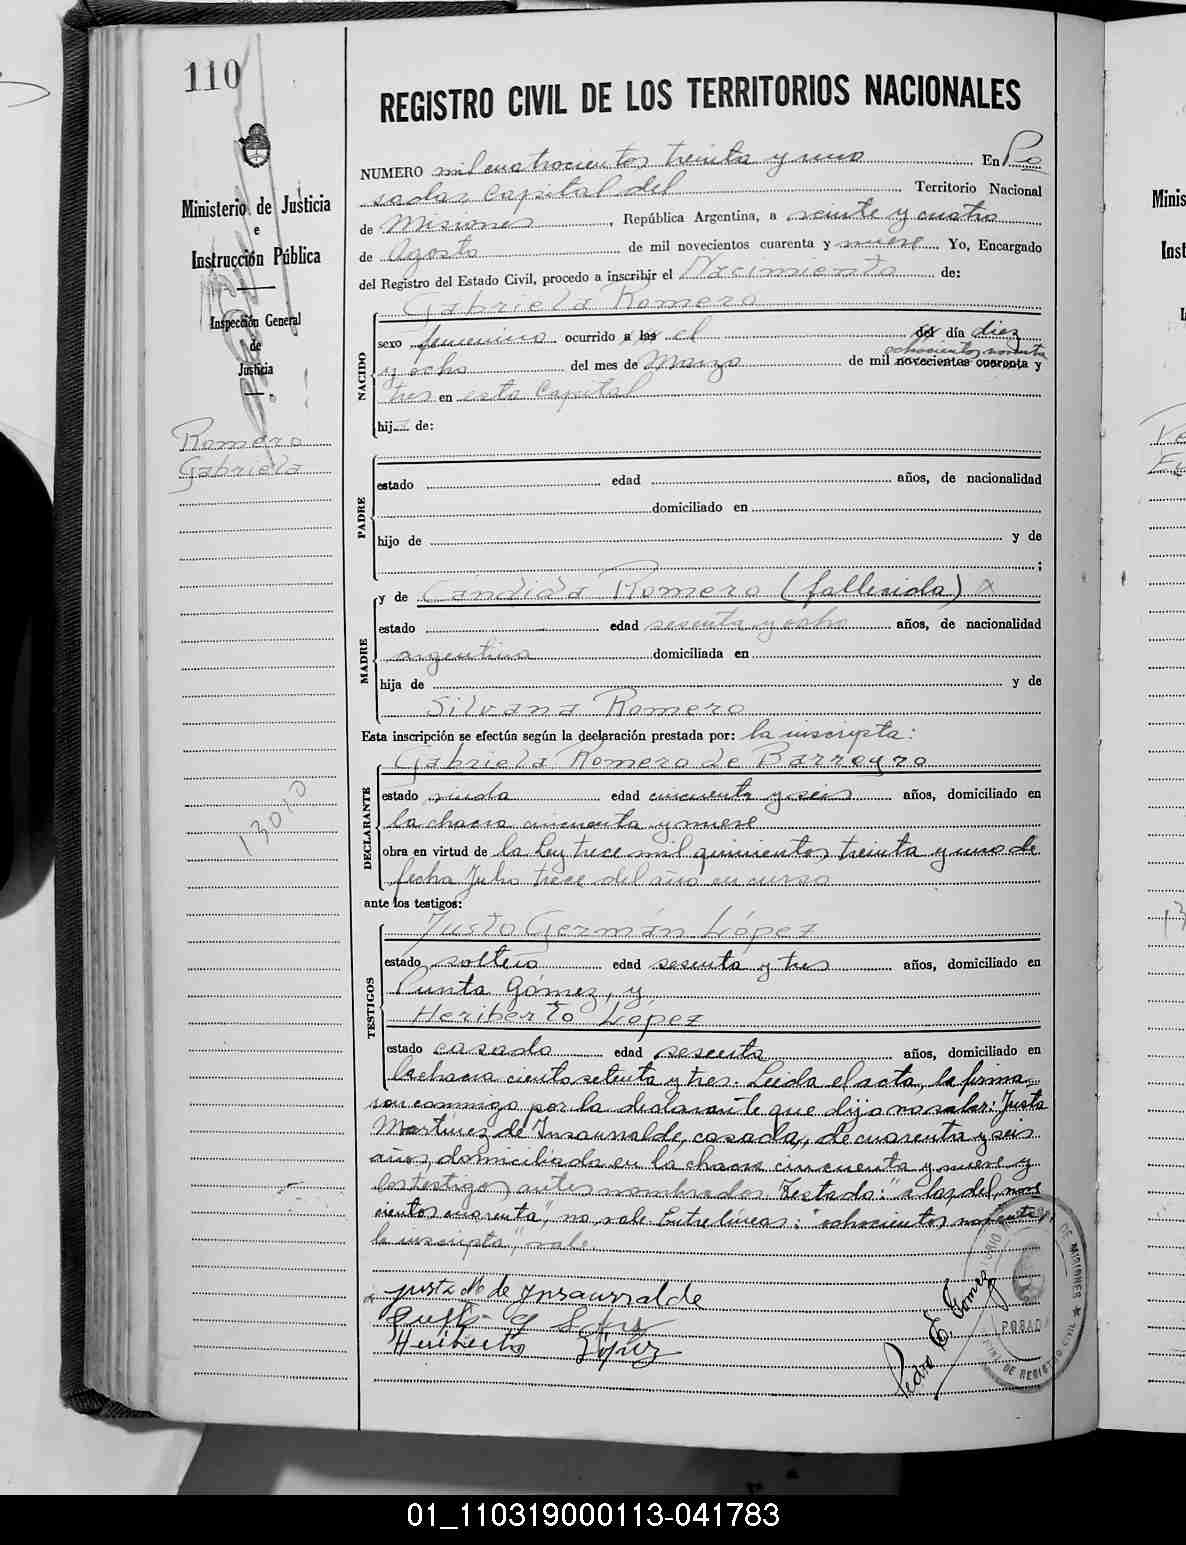 110
REGISTRO CIVIL DE LOS TERRITORIOS NACIONALES
Ministerio de Justicia
e
Instrucción Pública
Inspección General
de
Justicia
Romero
Gabriela
13010
NUMERO mil cuatrocientos treinta y uno En Po
sadas capital del Territorio Nacional
de Misiones, República Argentina, a veinte y cuatro
de Agosto de mil novecientos cuarenta y nueve Yo, Encargado
del Registro del Estado Civil, procedo a inscribir el Nacimiento de:
Gabriela Romero
NACIDO
sexo femenino ocurrido a las el del día diez
ochocientos noventa
y ocho del mes de Marzo de mil novecientos cuarenta y
tres en esta Capital
hij de:
PADRE
estado edad años, de nacionalidad
domiciliado en
hijo de y de
;
MADRE
y de Cándida Romero (fallecida) x
estado edad sesenta y ocho años, de nacionalidad
argentina domiciliada en
hija de y de
Silvana Romero
Esta inscripción se efectúa según la declaración prestada por: la inscripta:
Gabriela Romero de Barreyro
DECLARANTE
estado viuda edad cincuenta y seis años, domiciliado en
la chacra cincuenta y nueve
obra en virtud de la Ley trece mil quinientos treinta y uno de
fecha Julio trece del año en curso
ante los testigos:
Justo Germán López
TESTIGOS
estado soltero edad sesenta y tres años, domiciliado en
Punta Gómez, y
Heriberto López
estado casado edad sesenta años, domiciliado en
la chacra ciento setenta y tres. Leida el acta, la firma
ron conmigo por la declarante que dijo no saber: Justa
Martínez de Insaurralde, casada, de cuarenta y seis
años, domiciliada en la chacra cincuenta y nueve y
los testigos antes nombrados. Testado: "a las, del, nove
cientos cuarenta", no vale. Entre líneas: "ochocientos noventa y,
la inscripta", vale.
Justa M. de Ynsaurralde
Heriberto López
Pedro E. Gomez
DE MISIONES
POSADAS